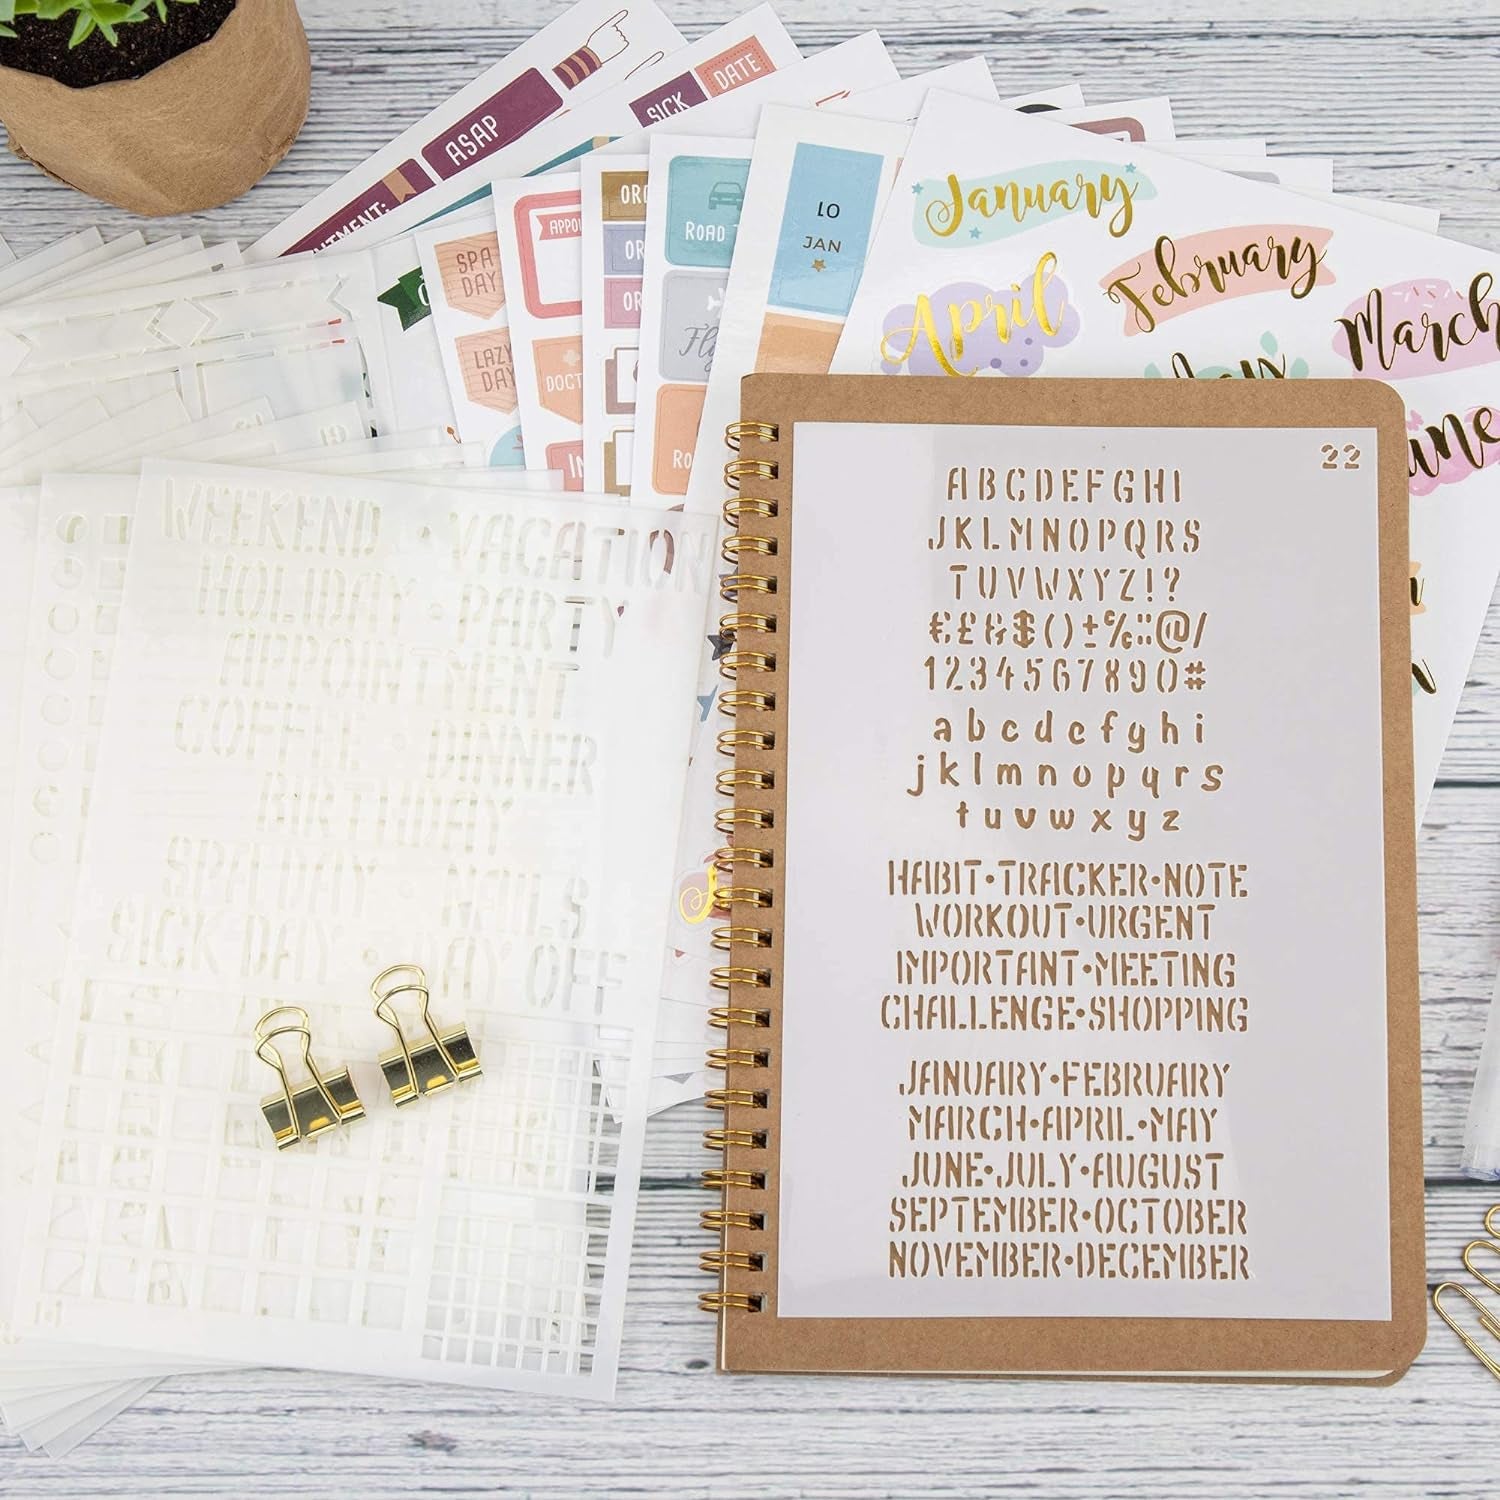 ASAP
SICK
DATE
SPA
DAY
LAZY
DAY
ROAD
LO
JAN
January
February
March
April
22
ABCDEFGHI
JKLMNOPQRS
TUVWXYZ!?
€£&$()±%::@/
1234567890#
abcdefghi
jklmnopqrs
tuvwxyz
HABIT•TRACKER•NOTE
WORKOUT•URGENT
IMPORTANT•MEETING
CHALLENGE•SHOPPING
JANUARY•FEBRUARY
MARCH•APRIL•MAY
JUNE•JULY•AUGUST
SEPTEMBER•OCTOBER
NOVEMBER•DECEMBER
WEEKEND • VACATION
HOLIDAY • PARTY
APPOINTMENT
COFFEE • DINNER
BIRTHDAY
SPA DAY • NAILS
SICK DAY • DAY OFF